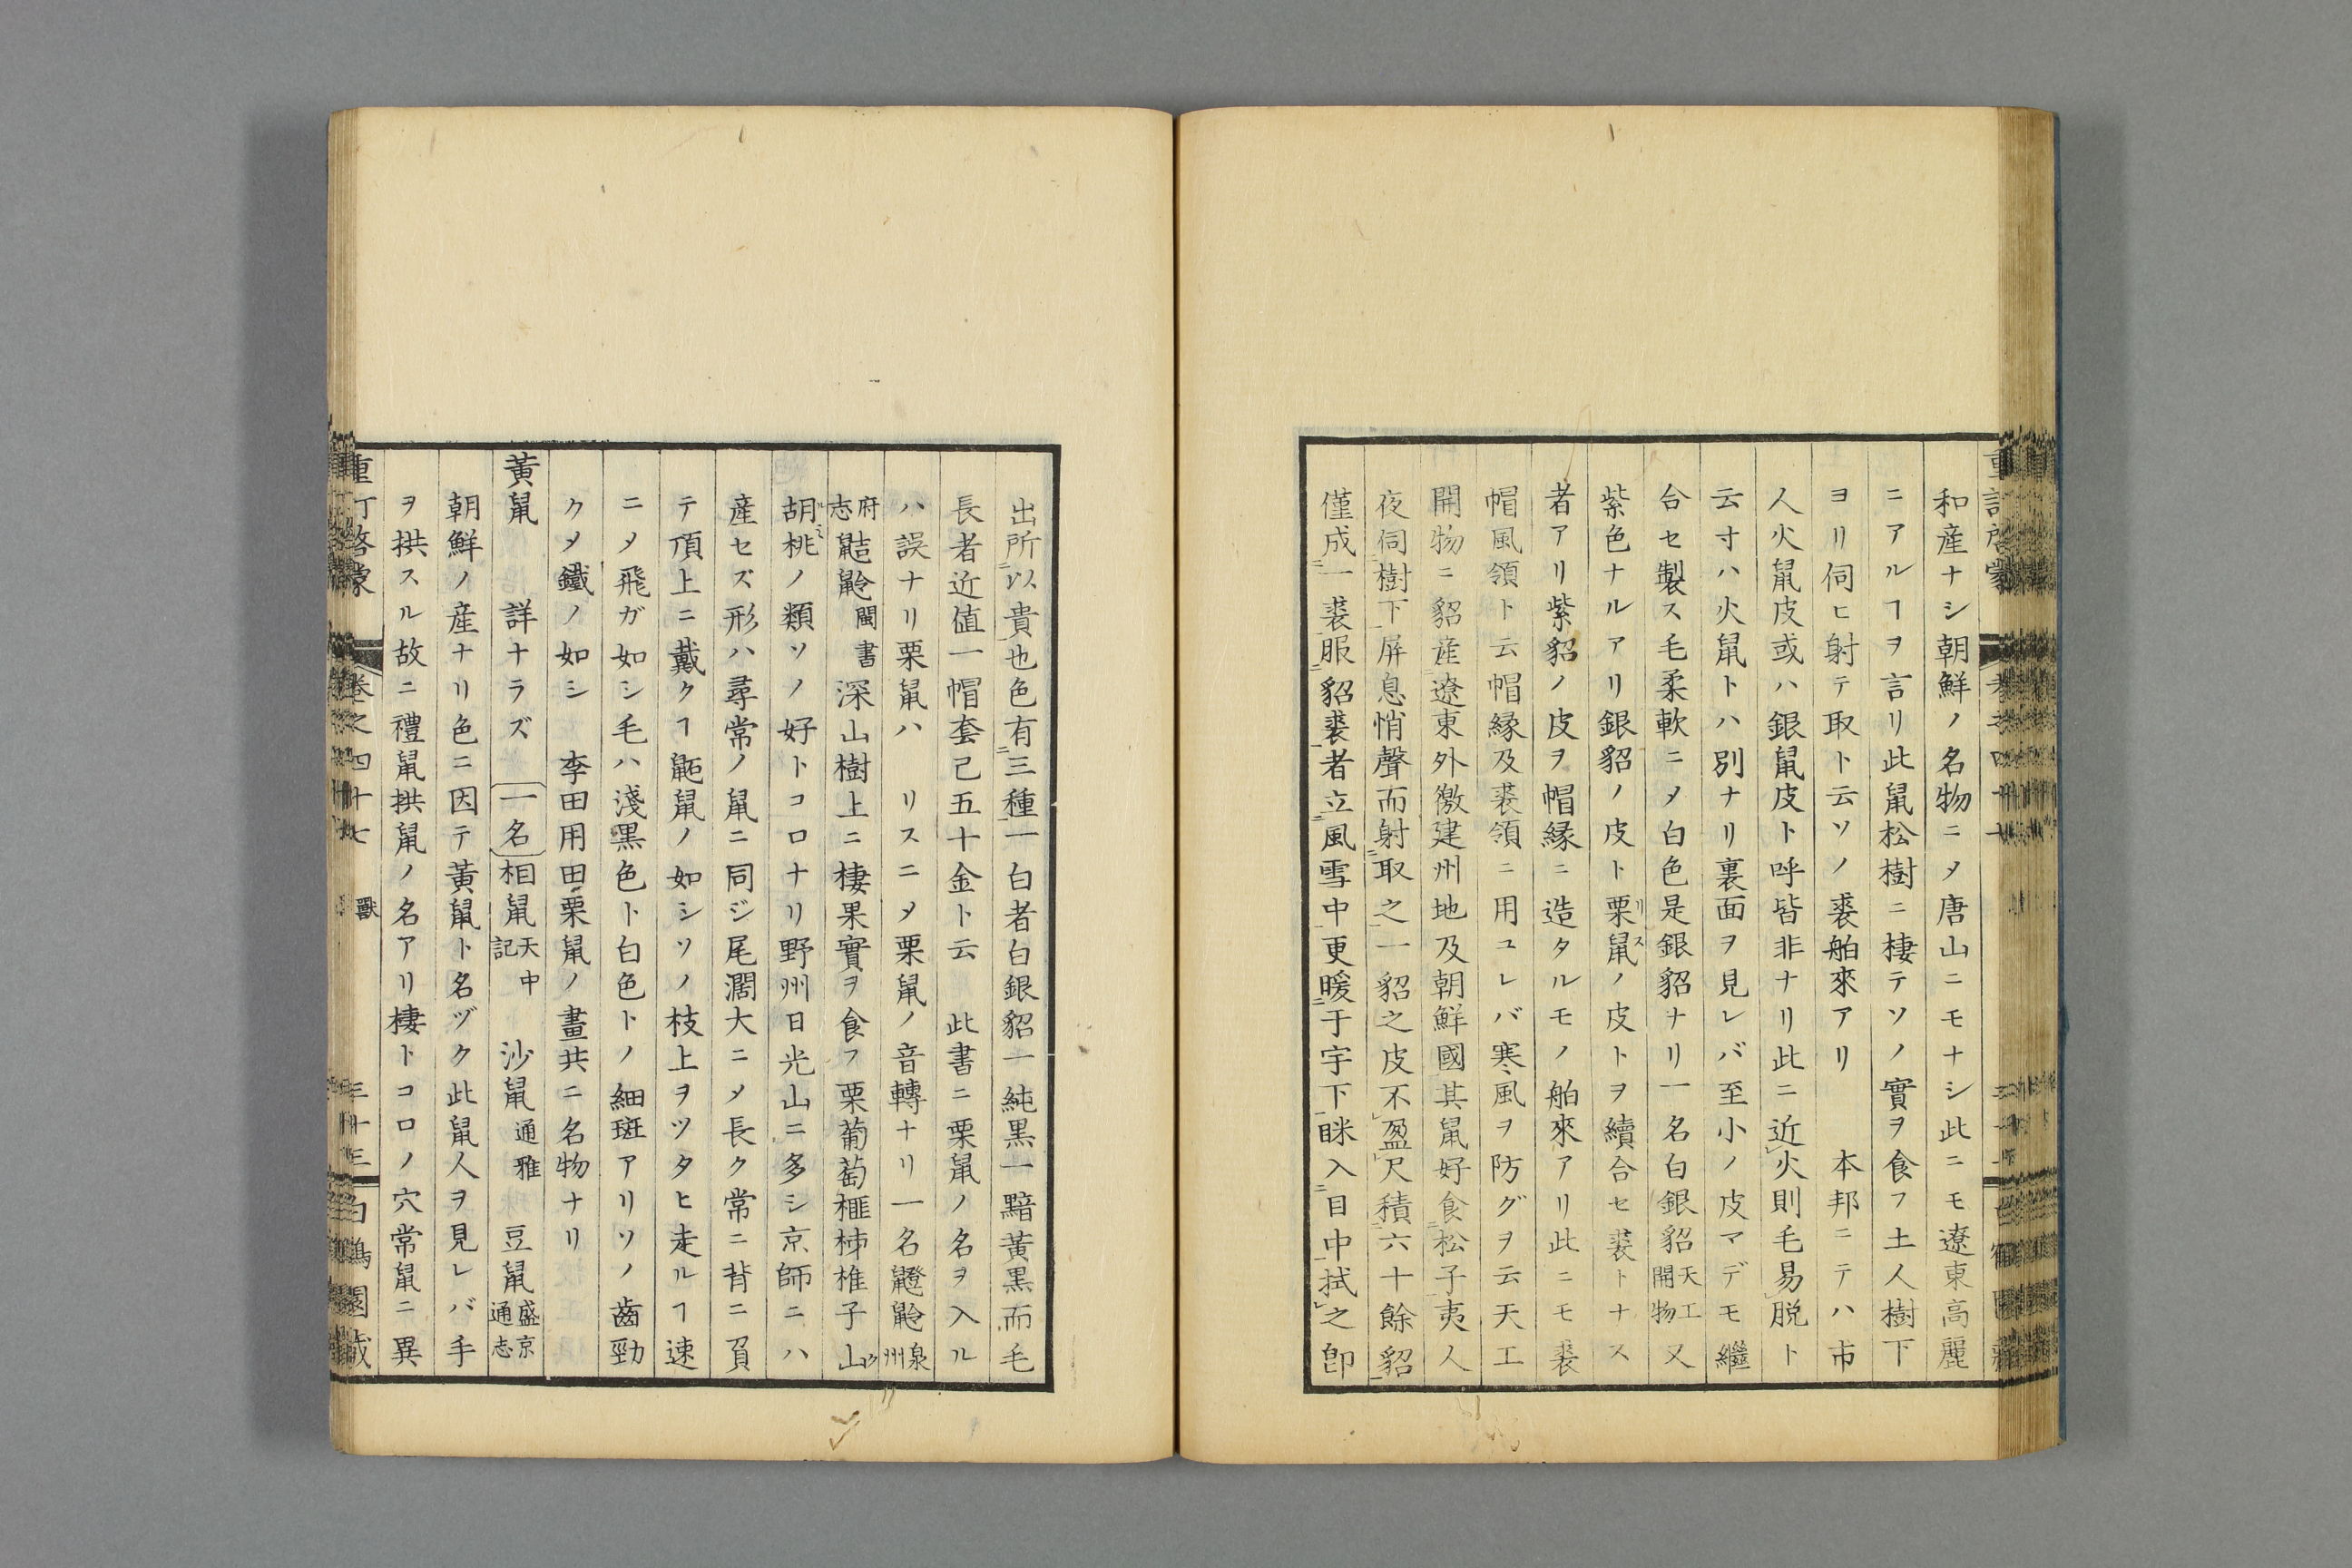 和産ナシ朝鮮ノ名物ニメ唐山ニモナシ此ニモ遼東高麗
ニアルヿヲ言リ此鼠松樹ニ棲テソノ實ヲ食フ土人樹下
ヨリ伺ヒ射テ取ト云ソノ裘舶來アリ 本邦ニテハ市
人火鼠皮或ハ銀鼠皮ト呼皆非ナリ此ニ近火則毛易脱ト
云寸ハ火鼠トハ別ナリ裏面ヲ見レバ至小ノ皮マデモ繼
合セ製ス毛柔軟ニメ白色是銀貂ナリ一名白銀貂天工開物又
紫色ナルアリ銀貂ノ皮ト栗鼠リスノ皮トヲ續合セ裘トナス
者アリ紫貂ノ皮ヲ帽縁ニ造タルモノ舶來アリ此ニモ裘
帽風領ト云帽縁及裘領ニ用ユレバ寒風ヲ防グヲ云天工
開物ニ貂産遼東外徼建州地及朝鮮國其鼠好食松子夷人
夜伺樹下屏息悄聲而射取之一貂之皮不盈尺積六十餘貂
僅成一裘服貂裘者立風雪中更暖于宇下眯入目中拭之卽
出所以貴也色有三種一白者白銀貂一純黒一黯黃黒而毛
長者近値一帽套已五十金ト云 此書ニ栗鼠ノ名ヲ入ル
ハ誤ナリ栗鼠ハ リスニメ栗鼠ノ音轉ナリ一名鼞鼢泉州
府志鼫鼢閩書深山樹上ニ棲果實ヲ食フ栗葡萄榧柹椎子山
胡桃ノ類ソノ好トコロナリ野州日光山ニ多シ京師ニハ
産セズ形ハ尋常ノ鼠ニ同ジ尾濶大ニメ長ク常ニ背ニ負
テ頂上ニ戴クヿ鼯鼠ノ如シソノ枝上ヲツタヒ走ルヿ速
ニメ飛ガ如シ毛ハ淺黒色ト白色トノ細斑アリソノ齒勁
クメ鐵ノ如シ 李田用田栗鼠ノ畫共ニ名物ナリ
黃鼠 詳ナラズ 一名 相鼠天中記 沙鼠通雅 豆鼠盛京通志
朝鮮ノ産ナリ色ニ因テ黃鼠ト名ヅク此鼠人ヲ見レバ手
ヲ拱スル故ニ禮鼠拱鼠ノ名アリ棲トコロノ穴常鼠ニ異
重訂啓蒙 卷之四十七 獸 三十三